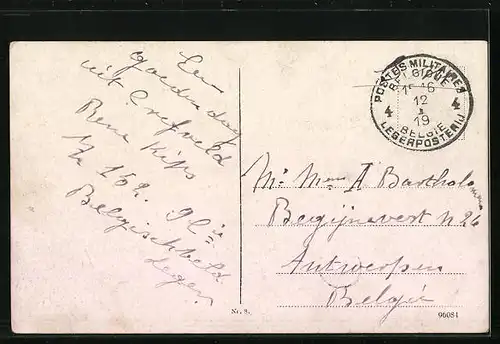 Een
goedendag
uit Crefeld
Rene Kips
Belgischveld
Leger
POSTES MILITAIRES
BELGIQUE
15-16
12
I
19
4 4
BELGIE
LEGERPOSTERIJ
Mr Mme A Bartholomeus
Begijnevest n 26
Antwerpen
België
Nr. 8.
06084